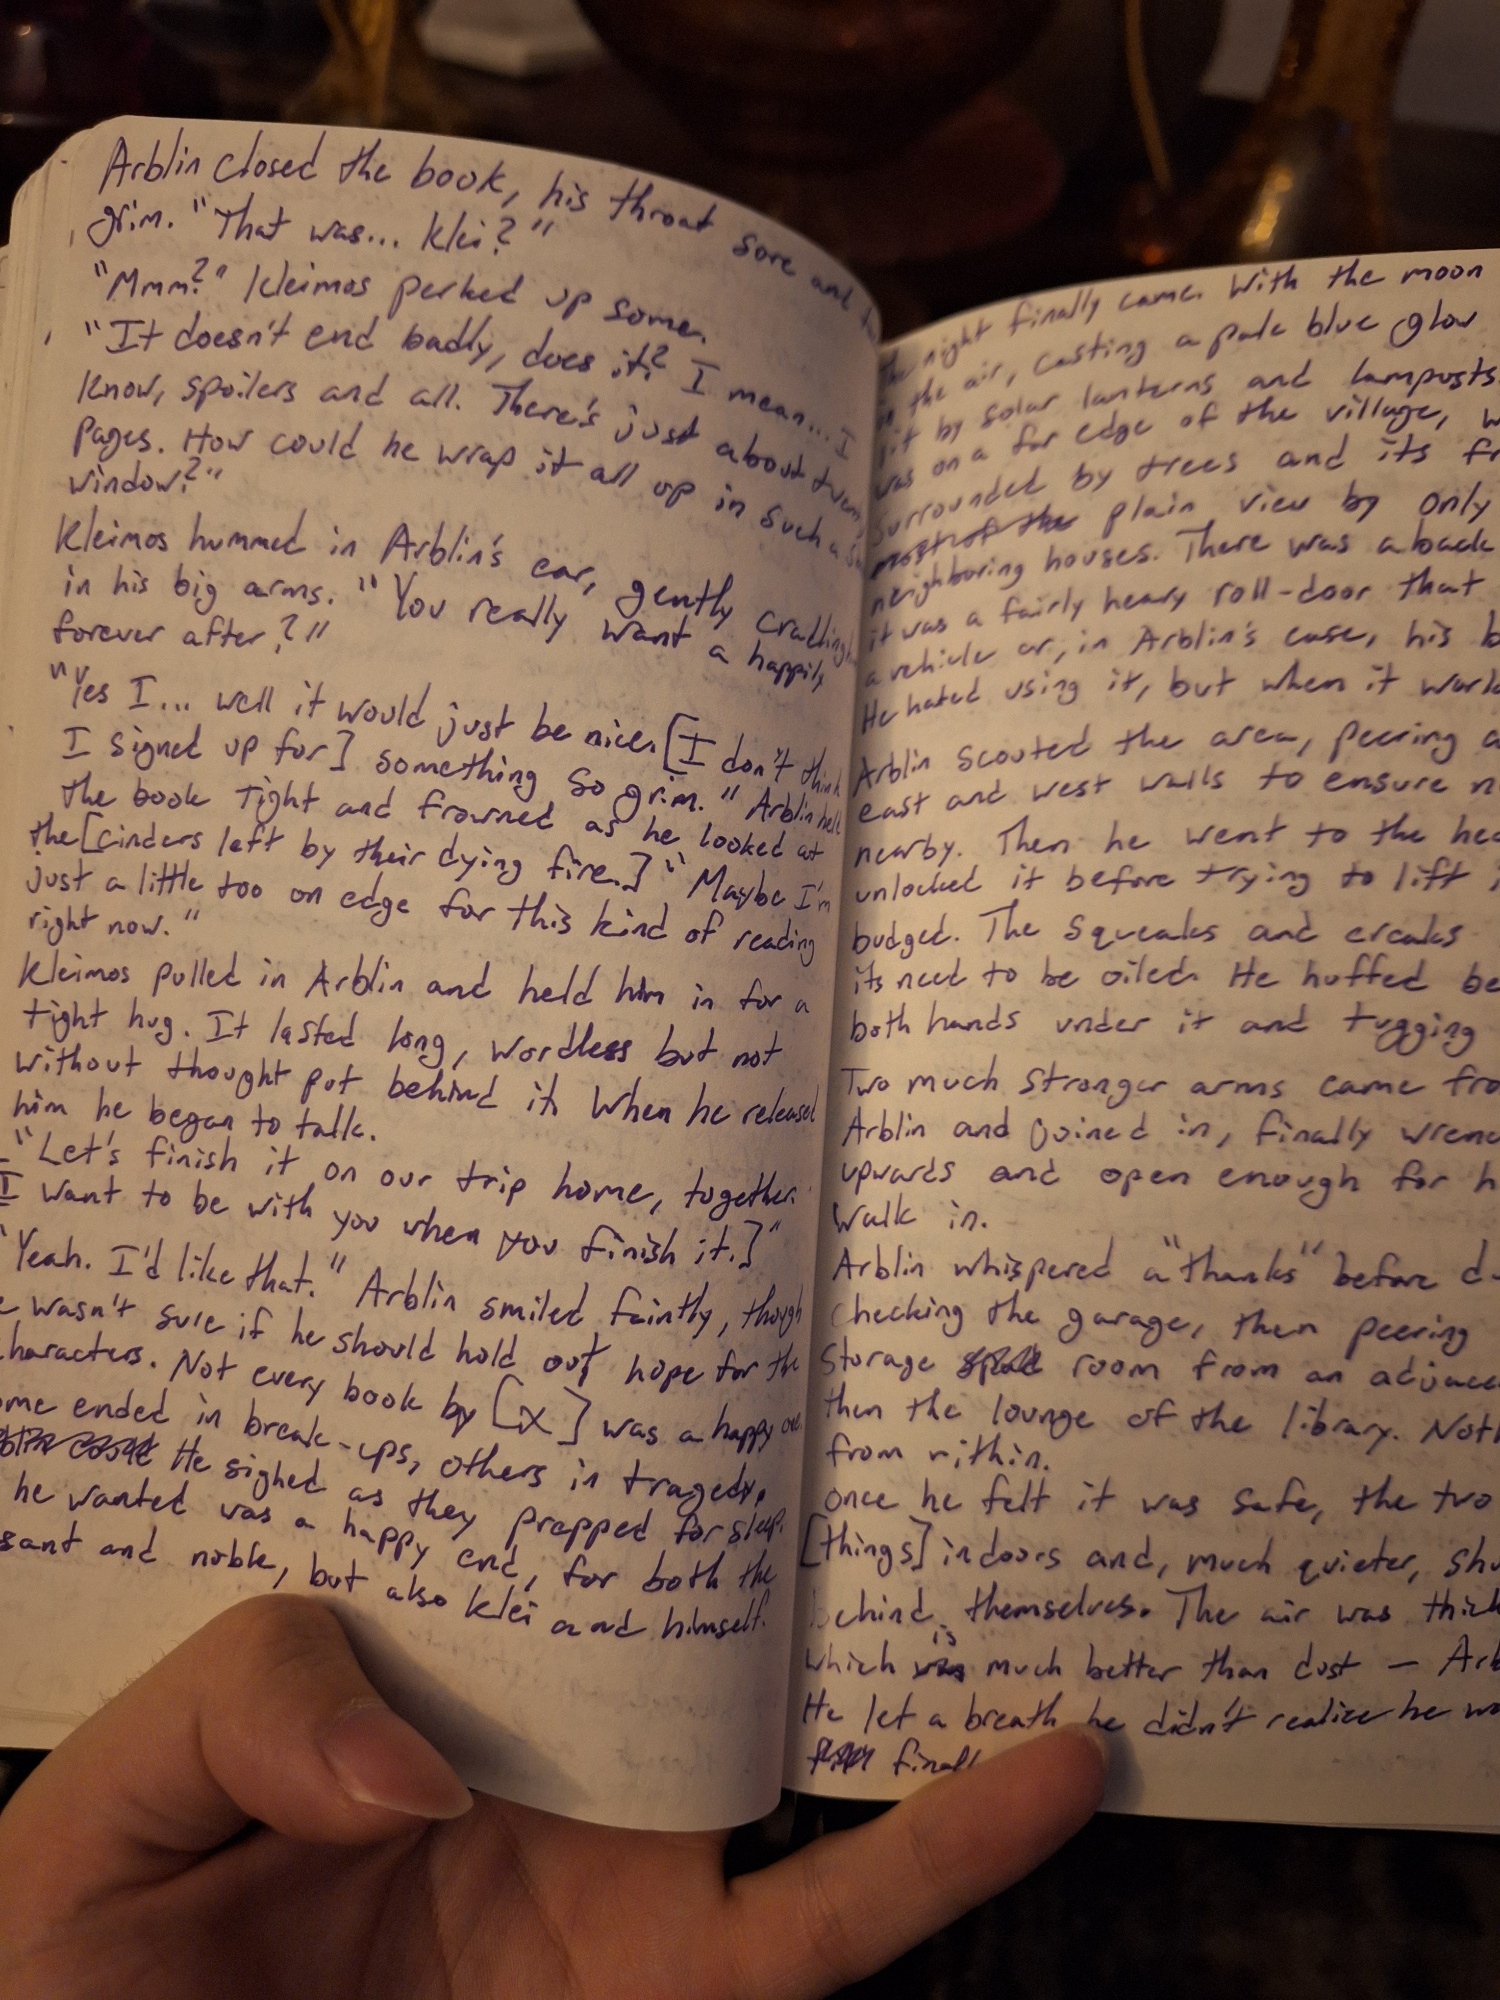 Arblin closed the book, his throat sore and
grim. "That was... Klei?"
"Mmm?" Kleimos perked up some.
"It doesn't end badly, does it? I mean... I
know, spoilers and all. There's just about
pages. How could he wrap it all up in such a
window?"
Kleimos hummed in Arblin's ear, gently cradling
in his big arms. "You really want a happily
forever after?"
"Yes I... well it would just be nice. [I don't think
I signed up for] something so grim." Arblin held
the book tight and frowned as he looked at
the [cinders left by their dying fire.] "Maybe I'm
just a little too on edge for this kind of reading
right now."
Kleimos pulled in Arblin and held him in for a
tight hug. It lasted long, wordless but not
without thought put behind it. When he released
him he began to talk.
"Let's finish it on our trip home, together.
I want to be with you when you finish it.]"
"Yeah. I'd like that." Arblin smiled faintly, though
wasn't sure if he should hold out hope for the
characters. Not every book by [X] was a happy one.
ome ended in break-ups, others in tragedy.
He sighed as they prepped for sleep.
he wanted was a happy end, for both the
sant and noble, but also Klei and himself.
The night finally came. With the moon
in the air, casting a pale blue glow
lit by solar lanterns and lampposts
was on a far edge of the village,
surrounded by trees and its
most of the plain view by only
neighboring houses. There was a back
it was a fairly heavy roll-door that
a vehicle or, in Arblin's case, his
He hated using it, but when it
Arblin scouted the area, peering
east and west walls to ensure
nearby. Then he went to the
unlocked it before trying to lift
budged. The squeaks and creaks
its need to be oiled. He huffed
both hands under it and tugging
Two much stronger arms came
Arblin and joined in, finally
upwards and open enough for
walk in.
Arblin whispered a "thanks" before
checking the garage, then peering
storage room from an
then the lounge of the library.
from within.
once he felt it was safe, the two
[things] indoors and, much quieter,
behind themselves. The air was thick
which is much better than dust —
He let a breath he didn't realize he